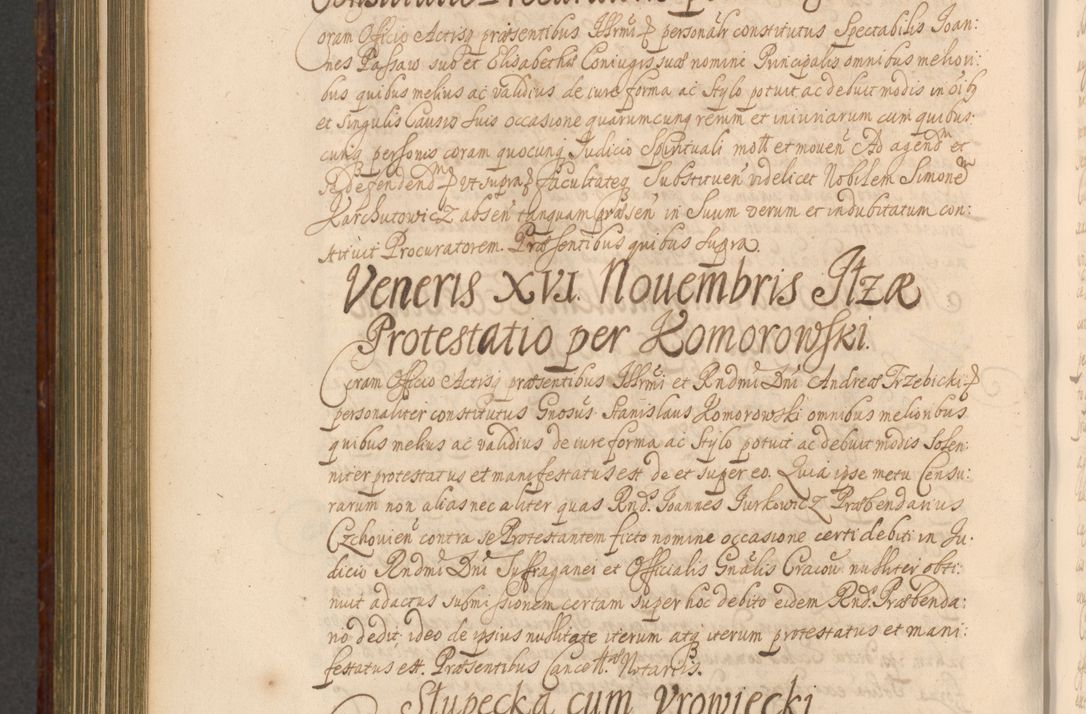 Coram Officio Actisq praesentibus Illrmi personalr constitutus Spectabilis Joan:
nes Passaw suo et Elisabethae Coniugis suae nomine Principalis omnibus meliori:
bus quibus melius ac validius de iure forma ac stylo potuit ac debuit modis in oib9
et singulis Causis suis occasione quarumcunq rerum et iniuriarum cum quibus
cunq personis coram quocunq Judicio Spirituali mott et mouen Ad agend et
Rdefendend ut supra facultateq Substituen videlicet Nobilem Simone
Karchutowicz absen tanquam praesen in Suum verum et indubitatum con:
stituit Procuratorem. Praesentibus quibus supra.
Veneris XVI. Nouembris Jtzae
Protestatio per Komorowski.
Coram Officio Actisq praesentibus Illrmi et Rndmi Dni Andreae Trzebicki
personaliter constitutus Gnosus Stanislaus Komorowski omnibus melioribus
quibus melius ac validius de iure forma ac stylo potuit ac debuit modis solen:
niter protestatus et manifestatus est de et super eo. Quia ipse metu Censu:
rarum non alias nec aliter quas Rnds Joannes Jurkowicz Praebendarius
Czchovien contra se Protestantem ficto nomine occasione certi debiti in Ju:
dicio Rndmi Dni Suffraganei et Officialis Gnalis Cracou nulliter obti:
nuit adactus submissionem certam super hoc debito eidem Rnds Praebenda:
no dedit ideo de ipsius nullitate iterum atq iterum protestatus et mani:
festatus est. Praesentibus Cancell. Notariis.
Słupecka cum Vrowiecki